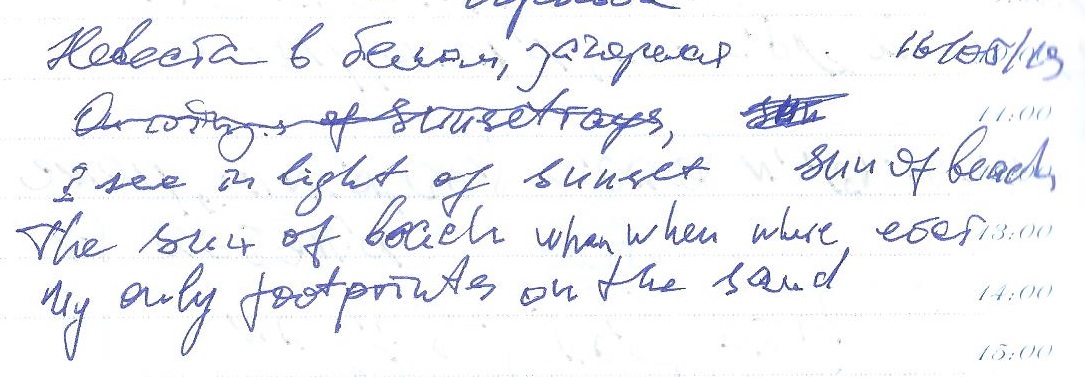 Невеста в белом, загорелая 16/05/19
of sunset rays, 11:00
I see in light of sunset sun of beach
The sun of beach when when where, 13:00
My only footprints on the sand 14:00
15:00